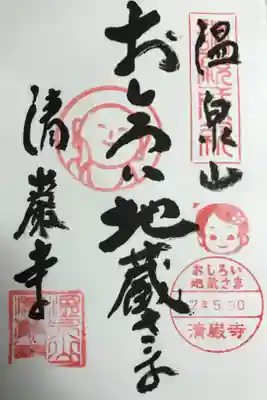 温泉山
おしろい地蔵さま
清巖寺
おしろい
地蔵さま
7.5.
清巌寺